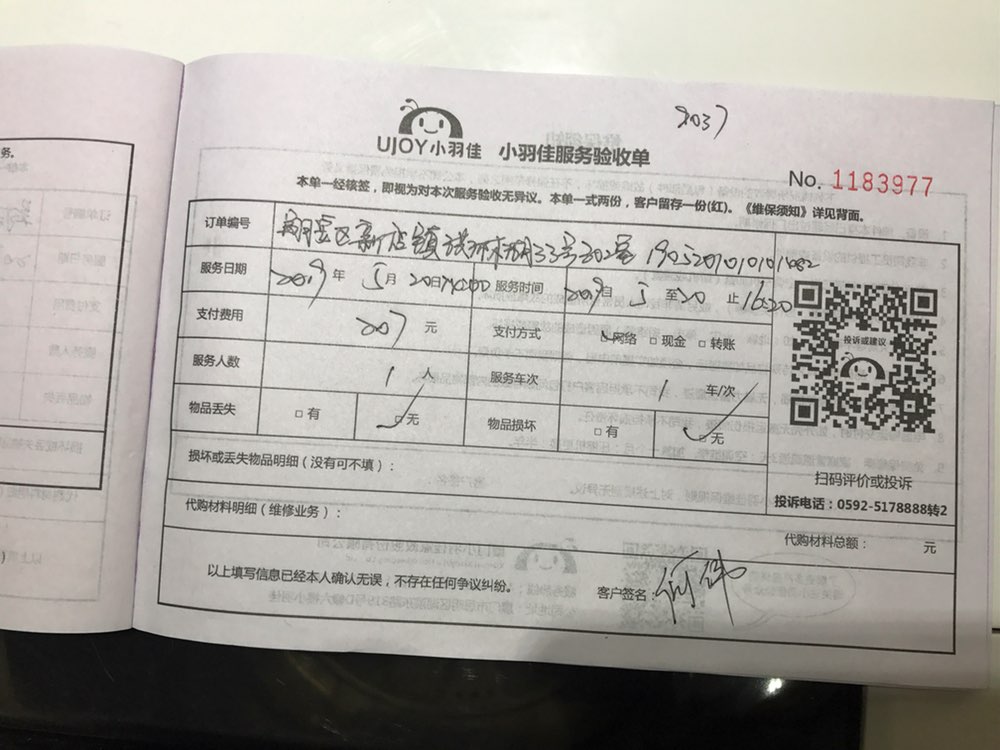 9037
UJOY小羽佳 小羽佳服务验收单
No. 1183977
本单一经核签，即视为对本次服务验收无异议。本单一式两份，客户留存一份(红)。《维保须知》详见背面。
订单编号 翔安区新店镇 33号302室 1905201010101082
服务日期 2019年 5月 20日 服务时间 2019自 5 至20 止 16:20
支付费用 207 元 支付方式 网络 □ 现金 □ 转账
服务人数 1 人 服务车次 1 车/次
物品丢失 □ 有 □ 无 物品损坏 □ 有 □ 无
投诉或建议
扫码评价或投诉
投诉电话：0592-5178888转2
损坏或丢失物品明细（没有可不填）：
代购材料明细（维修业务）：
代购材料总额： 元
以上填写信息已经本人确认无误，不存在任何争议纠纷。 客户签名：
务。